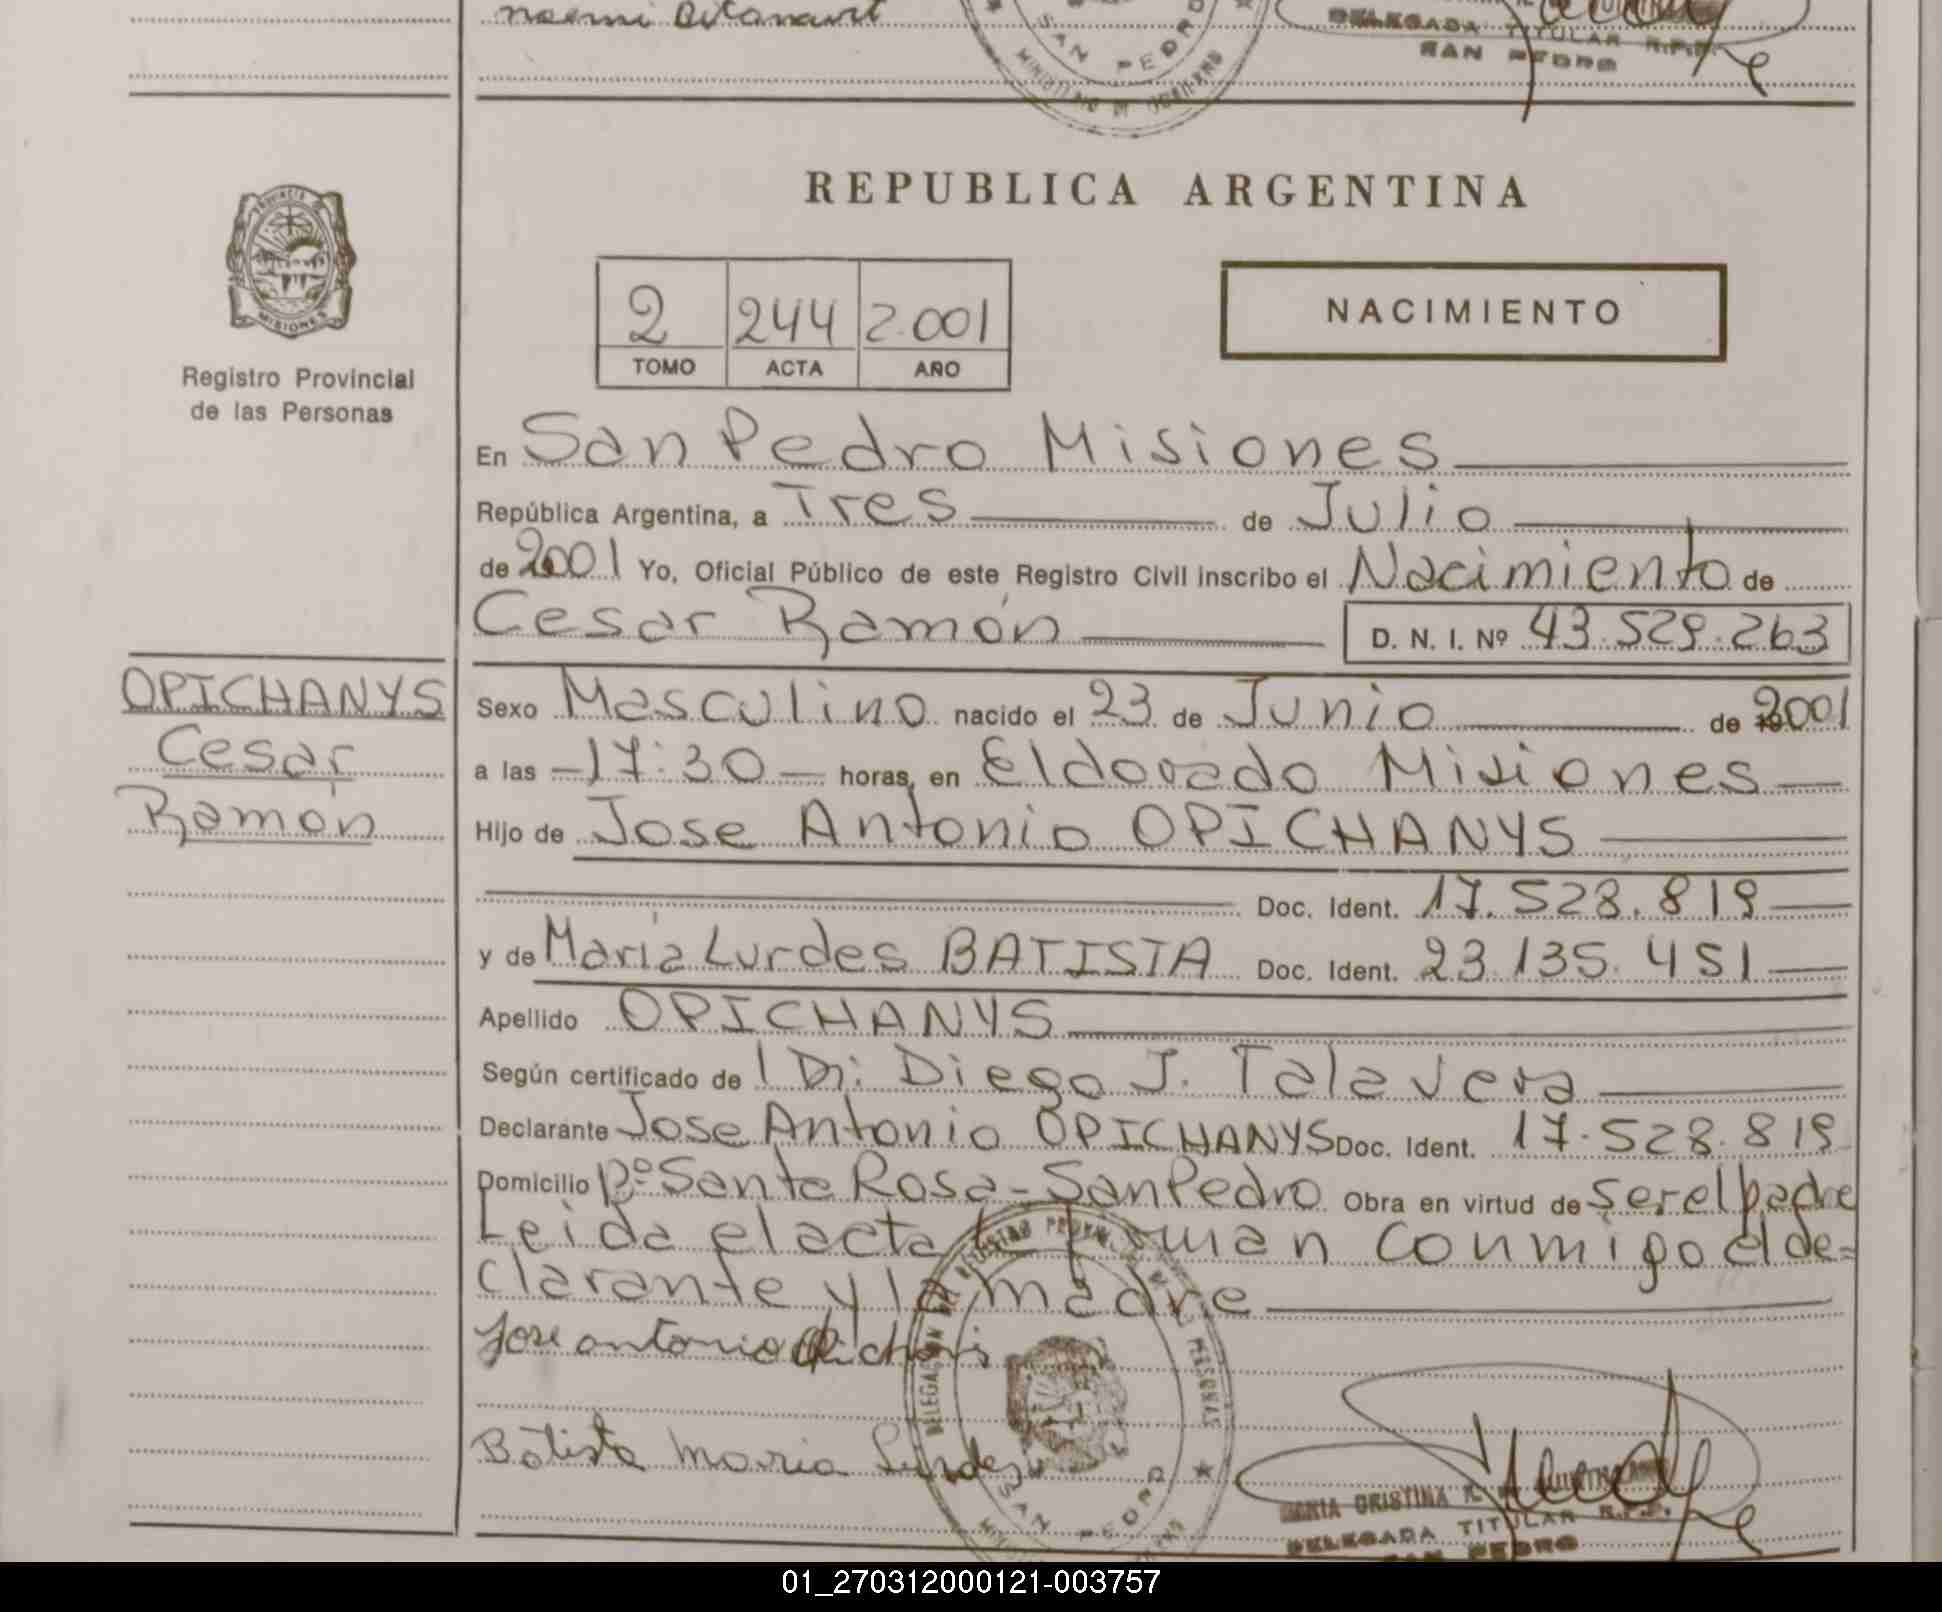 SAN PEDRO
MINISTERIO DE GOBIERNO
DELEGADA TITULAR R.P.P.
SAN PEDRO
PROVINCIA DE
MISIONES
Registro Provincial
de las Personas
REPUBLICA ARGENTINA
2 244 2.001
TOMO ACTA AÑO
NACIMIENTO
En San Pedro Misiones
República Argentina, a Tres de Julio
de 2001 Yo, Oficial Público de este Registro Civil inscribo el Nacimiento de
Cesar Ramón D. N. I. Nº 43.529.263
OPICHANYS
Cesar
Ramón
Sexo Masculino nacido el 23 de Junio de 2001
a las -17:30- horas, en Eldorado Misiones
Hijo de Jose Antonio OPICHANYS
Doc. Ident. 17.528.819
y de Maria Lurdes BATISTA Doc. Ident. 23.135.451
Apellido OPICHANYS
Según certificado de Dr: Diego J. Talavera
Declarante Jose Antonio OPICHANYS Doc. Ident. 17.528.819
Domicilio Pº Santa Rosa - San Pedro Obra en virtud de ser el padre
Leida el acta la firman conmigo el de=
clarante y la madre
Jose antonio Opichanis
Batista Maria Lurdes
DELEGACION DEL REGISTRO PROVINCIAL DE LAS PERSONAS
SAN PEDRO
MARIA CRISTINA
DELEGADA TITULAR R.P.P.
SAN PEDRO
01_270312000121-003757